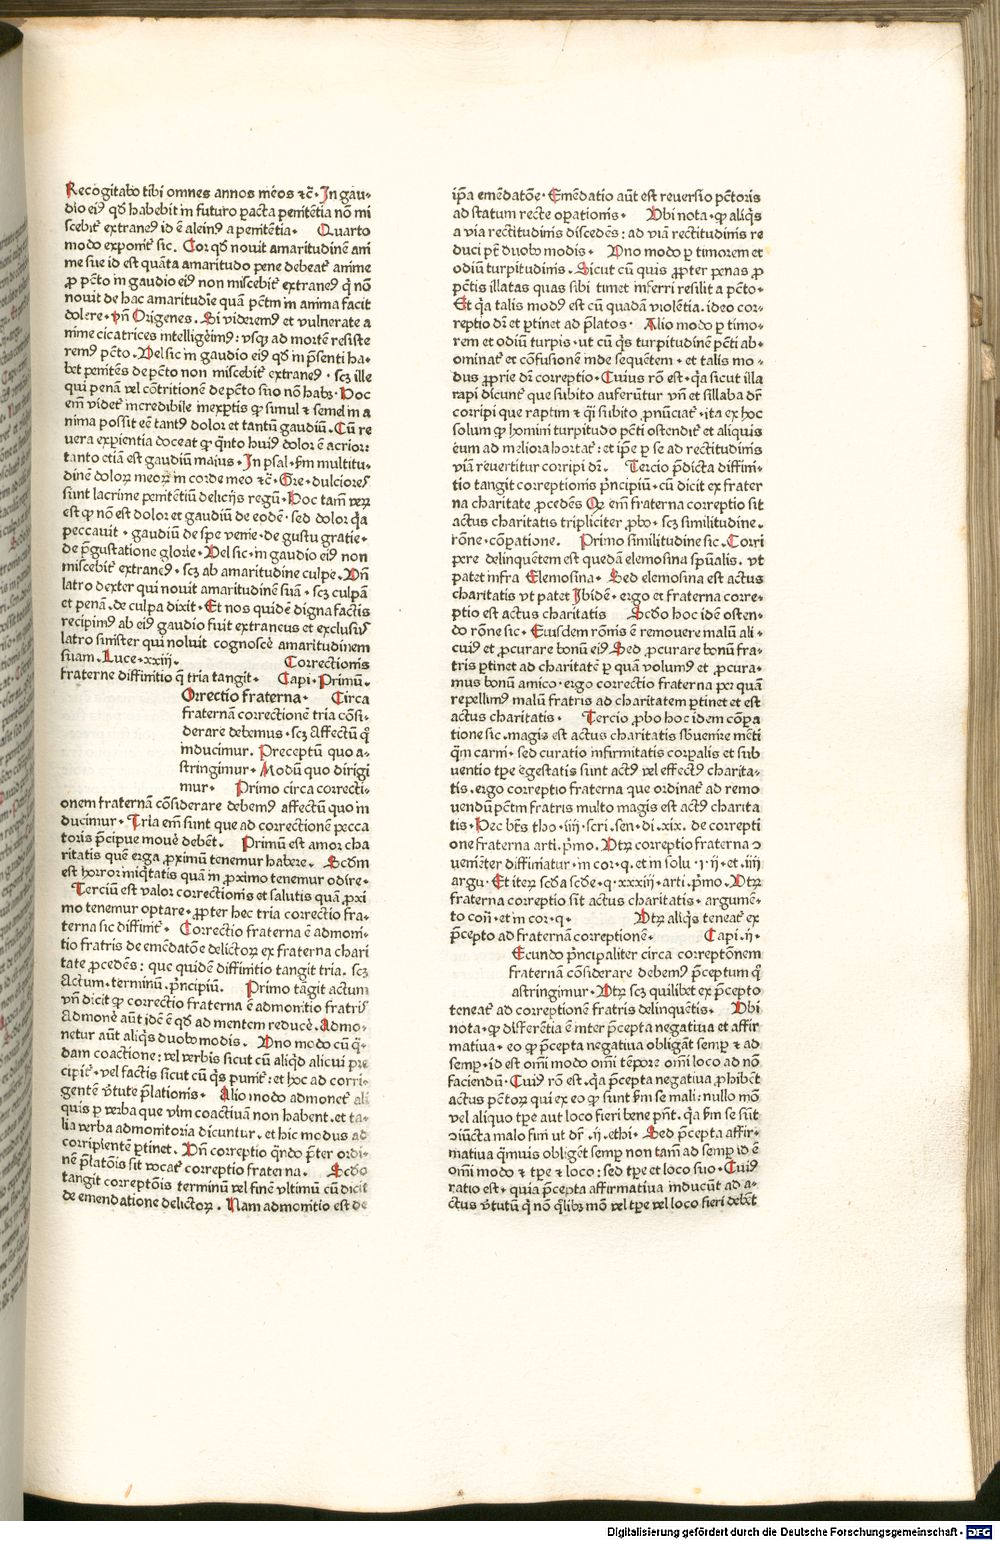 Recogitabo tibi omnes annos meos ⁊c̄. In gau-
dio eiꝰ qd̓ habebit in futuro ꝑacta penitētia nō mi
scebit̉ extraneꝰ id ē alienꝰ a penitētia. Quarto
modo exponit̉ sic. Cor qd̓ nouit amaritudinē ani
me sue id est quāta amaritudo pene debeat̉ anime
ꝓ pctō in gaudio eiꝰ non miscebit̉ extraneꝰ q̄ nō
nouit de hac amaritudīe quā pctm̄ in anima facit
dolere. vn̄ Origenes. Si viderem̄ et vulnerate a
nime cicatrices intelligēimꝰ: vsqꝫ ad mortē resiste
remꝰ pctō. Uel sic in gaudio eiꝰ qd̓ in p̄senti ha-
bet penitēs de pctō non miscebit̉ extraneꝰ. scꝫ ille
qui penā vel cōtritionē de pctō suo nō habꝫ. Hoc
em̄ videt̉ incredibile inexꝑtis ꝙ simul ⁊ semel in a
nima possit eē tantꝰ dolor et tantū gaudiū. Cū re
vera exꝑientia doceat ꝙ q̄nto huiꝰ dolor ē acrior:
tanto etiā est gaudiū maius. In psal. ẜm multitu-
dinē dolorꝝ meorꝝ in corde meo ⁊c̄. Gre. dulciores
sunt lacrime penitētiū delicijs regū. Hoc tam̄ verꝝ
est ꝙ nō est dolor et gaudiū de eodē. sed dolor q̄a
peccauit. gaudiū de spe venie. de gustu gratie.
de p̄gustatione glorie. Uel sic. in gaudio eiꝰ non
miscebit̉ extraneꝰ. scꝫ ab amaritudine culpe. Un̄
latro dexter qui nouit amaritudinē suā. scꝫ culpā
et penā. de culpa dixit. Et nos quidē digna factis
recipimꝰ ab eiꝰ gaudio fuit extraneus et exclusus
latro sinister qui noluit cognoscē amaritudinem
suam. Luce. xxiij. Correctionis
fraterne diffinitio q̄ tria tangit. Capi. Primū.
Orrectio fraterna. Circa
fraternā correctionē tria cōsi-
derare debemus. scꝫ Affectū q̄
inducimur. Preceptū quo a-
stringimur. Modū quo dirigi
mur. Primo circa correcti-
onem fraternā cōsiderare debemꝰ affectū quo in
ducimur. Tria em̄ sunt que ad correctionē pecca
toris p̄cipue mouē debēt. Primū est amor cha
ritatis quē erga ꝓximū tenemur habere. Scdm
est horror iniq̄tatis quā in ꝓximo tenemur odire.
Terciū est valor correctionis et salutis quā ꝓxi
mo tenemur optare. ꝓpter hec tria correctio fra-
terna sic diffinit̉. Correctio fraterna ē admoni-
tio fratris de emēdatōe delictorꝝ ex fraterna chari
tate ꝓcedēs: que quidē diffinitio tangit tria. scꝫ
Actum. terminū. p̄ncipiū. Primo tāgit actum
vn̄ dicit ꝙ correctio fraterna ē admonitio fratris
Admonē aūt idē ē qd̓ ad mentem reducē. Admo-
netur aūt aliq̄s duobꝰ modis. Uno modo cū q̄-
dam coactione: vel verbis sicut cū aliqd̓ alicui pre
cipit̉. vel factis sicut cū q̄s punit̉: et hoc ad corri-
gentē v̓tute p̄lationis. Alio modo admonet̉ ali
quis ꝑ verba que vim coactiuā non habent. et ta-
lia verba admonitoria dicuntur. et hic modus ad
corripientē ꝑtinet. Un̄ correptio q̄ndo p̄ter ordi-
nē p̄latōis sit vocat̉ correptio fraterna. Scdo
tangit correptōis terminū vel finē vltimū cū dicit
de emendatione delictorꝝ. Nam admonitio est de
ip̄a emēdatōe. Emēdatio aūt est reuersio pctōris
ad statum recte oꝑationis. Ubi nota. ꝙ aliq̄s
a via rectitudinis discedēs: ad viā rectitudinis re
duci pōt duobꝰ modis. Uno modo ꝑ timorem et
odiū turpitudinis. Sicut cū quis ꝓpter penas ꝓ
pctīs illatas quas sibi timet inferri resilit a pctō.
Et q̄a talis modꝰ est cū quadā violētia. ideo cor-
reptio dr̄ et ꝑtinet ad p̄latos. Alio modo ꝑ timo-
rem et odiū turpis. ut cū q̄s turpitudinē pctī ab-
ominat̉ et cōfusionē inde sequētem. et talis mo-
dus ꝓprie dr̄ correptio. Cuius rō est. q̄a sicut illa
rapi dicunt̉ que subito auferūtur vn̄ et sillaba dr̄
corripi que raptim ⁊ q̄si subito ꝓnūciat̉. ita ex hoc
solum ꝙ homini turpitudo pctī ostendit̉ et aliquis
eum ad meliora hortat̉: et ip̄e ꝑ se ad rectitudinis
viā reuertitur corripi dr̄. Tercio p̄dicta diffini-
tio tangit correptionis p̄ncipiū. cū dicit ex frater
na charitate ꝓcedēs Qꝫ em̄ fraterna correptio sit
actus charitatis tripliciter ꝓbo. scꝫ similitudine.
rōne. cōꝑatione. Primo similitudine sic. Corri
pere delinquētem est quedā elemosina spūalis. vt
patet infra Elemosina. Sed elemosina est actus
charitatis vt patet Ibidē. ergo et fraterna corre-
ptio est actus charitatis Scdo hoc idē osten-
do rōne sic. Eiusdem rōnis ē remouere malū ali-
cuiꝰ et ꝓcurare bonū eiꝰ Sed ꝓcurare bonū fra-
tris ꝑtinet ad charitatē ꝑ quā volumꝰ et ꝓcura-
mus bonū amico. ergo correctio fraterna per quā
repellimꝰ malū fratris ad charitatem ꝑtinet et est
actus charitatis. Tercio ꝓbo hoc idem cōꝑa
tione sic. magis est actus charitatis sb̓uenire mēti
q̄m carni. sed curatio infirmitatis corꝑalis et sub
uentio tꝑe egestatis sunt actꝰ vel effectꝰ charita-
tis. ergo correptio fraterna que ordinat̉ ad remo
uendū pctm̄ fratris multo magis est actꝰ charita
tis. Hec bt̄s tho. iiij. scri. sen. di. xix. de correpti
one fraterna arti. p̄mo. Utrꝝ correptio fraterna ↄ
uenīeter diffiniatur. in cor. q. et in solu. j. ij. et. iiij
argu. Et iterꝫ scd̓a scd̓e. q. xxxiij. arti. p̄mo. Utrꝝ
fraterna correptio sit actus charitatis. argumē-
to con̄. et in cor. q. Utrꝝ aliq̄s teneat̉ ex
p̄cepto ad fraternā correptionē. Capi. ij.
Ecundo p̄ncipaliter circa correptōnem
fraternā cōsiderare debemꝰ p̄ceptum q̄
astringimur. Utrꝝ scꝫ quilibet ex p̄cepto
teneat̉ ad correptionē fratris delinquētis. Ubi
nota. ꝙ differētia ē inter p̄cepta negatiua et affir
matiua. eo ꝙ p̄cepta negatiua obligāt semꝑ ⁊ ad
semꝑ. id est om̄i modo om̄i tēpore om̄i loco ad nō
faciendū. Cuiꝰ rō est. q̄a p̄cepta negatiua ꝓhibēt
actus pctōrꝫ qui ex eo ꝙ sunt ẜm se mali: nullo mō
vel aliquo tꝑe aut loco fieri bene pn̄t. q̄a ẜm se sūt
ↄiūcta malo fini ut dr̄. ij. ethi. Sed p̄cepta affir-
matiua q̄muis obligēt semꝑ non tam̄ ad semꝑ id ē
om̄i modo ⁊ tꝑe ⁊ loco: sed tꝑe et loco suo. Cuiꝰ
ratio est. quia p̄cepta affirmatiua inducūt ad a-
ctus v̓tutū q̄ nō q̄libꝫ mō vel tꝑe vel loco fieri debēt
Digitalisierung gefördert durch die Deutsche Forschungsgemeinschaft - DFG